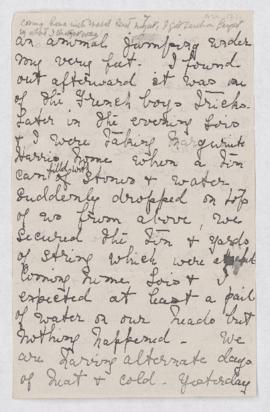 coming home with
an animal jumping under
my very feet. I found
out afterward it was one
of the French boys tricks.
Later in the evening Lois
& I were taking Marguerite
Harris home when a tin
can filled with stones & water
suddenly dropped on top
of us from above, we
secured the tin & yards
of string which were
Coming home, Lois & I
expected at least a pail
of water on our heads but
nothing happened - We
are having alternate days
of heat & cold. Yesterday